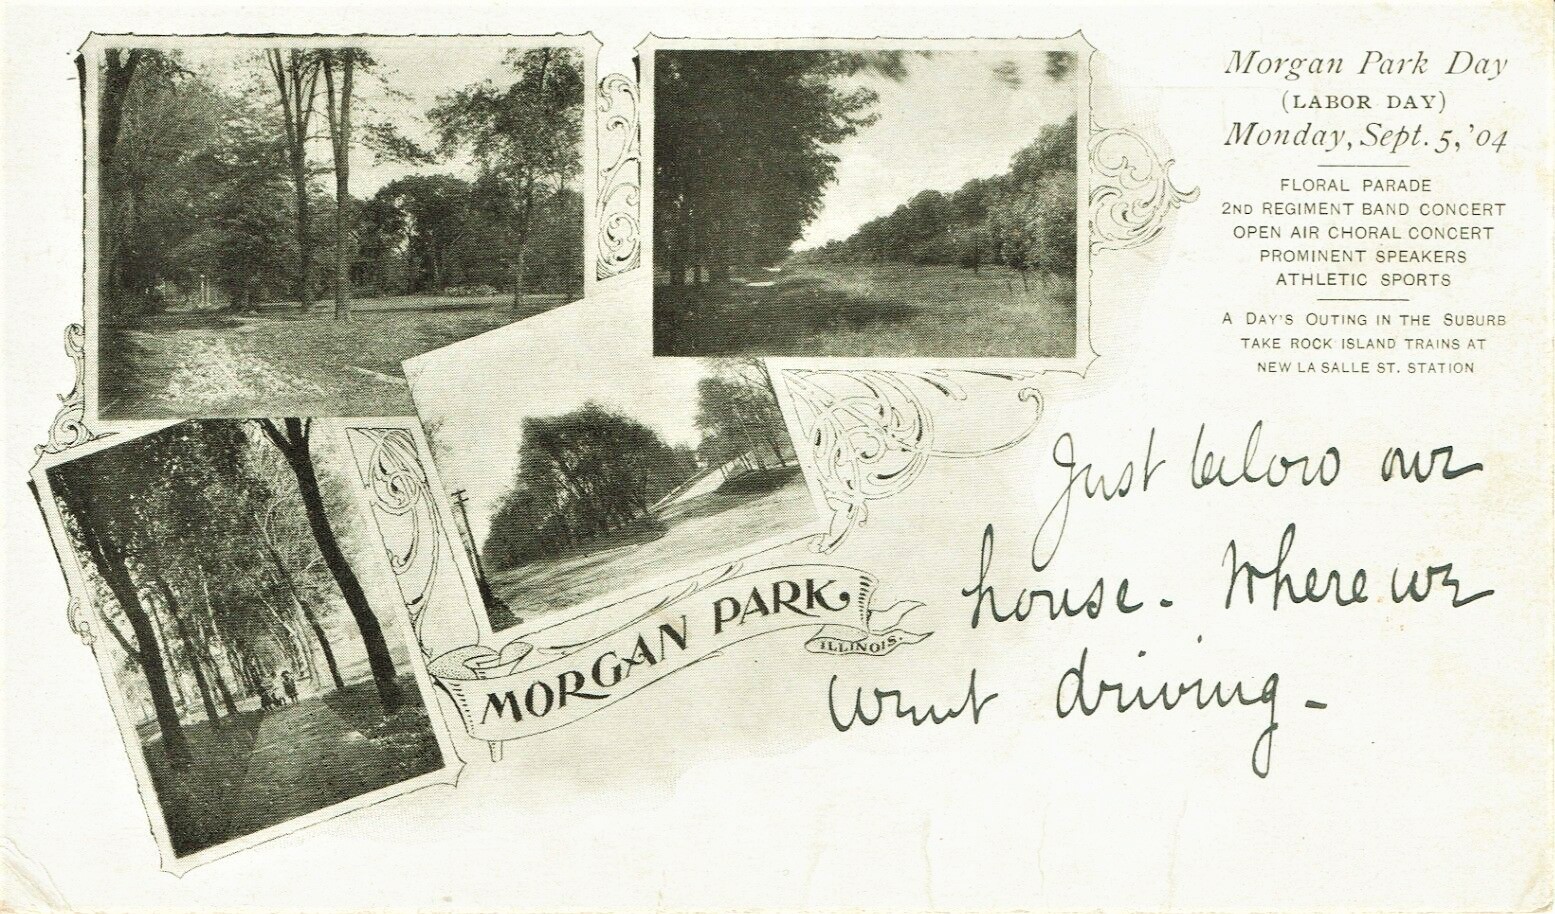 Morgan Park Day
(LABOR DAY)
Monday, Sept. 5, '04
FLORAL PARADE
2ND REGIMENT BAND CONCERT
OPEN AIR CHORAL CONCERT
PROMINENT SPEAKERS
ATHLETIC SPORTS
A DAY'S OUTING IN THE SUBURB
TAKE ROCK ISLAND TRAINS AT
NEW LA SALLE ST. STATION
Just below our
house. Where we
went driving-
MORGAN PARK
ILLINOIS.